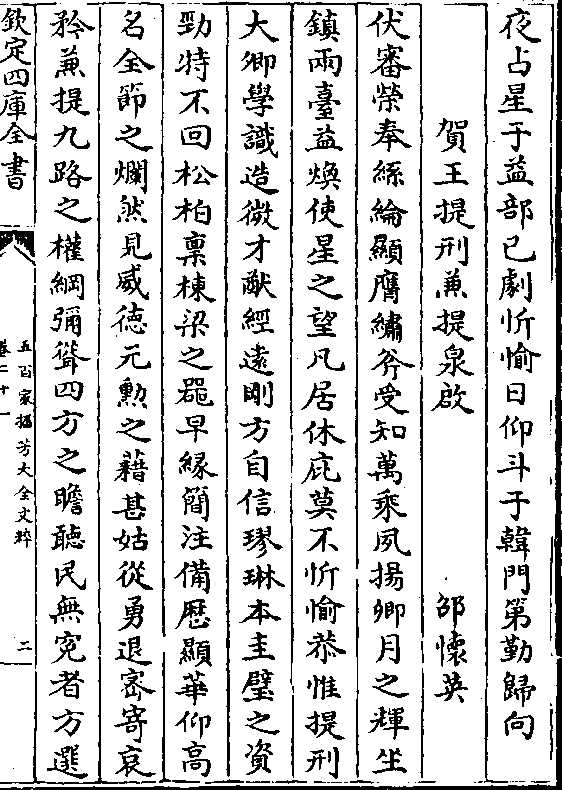 夜占星于益部已劇忻愉日仰斗于韓門第勤歸向
賀王提刑兼提泉啟　邵懷英
伏審榮奉絲綸顯膺繡斧受知萬乘夙揚卿月之輝坐
鎮兩臺益煥使星之望凡居休庇莫不忻愉恭惟提刑
大卿學識造微才猷經遠剛方自信璆琳本圭璧之資
勁特不回松柏稟棟梁之噐早緣簡注備歴顯華仰高
名全節之爛然見威徳元勲之藉甚姑從勇退宻寄哀
矜兼提九路之權綱彌聳四方之瞻聽民無寃者方選
欽定四庫全書
五百家播芳大全文粹
卷二十一
二